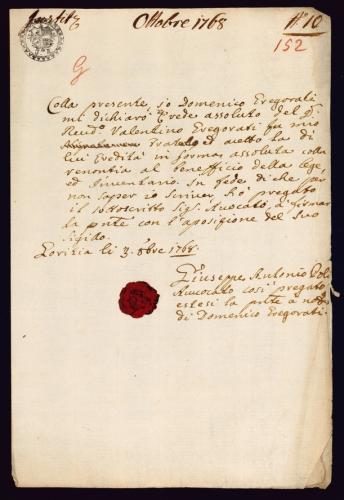 Ottobre 1768
N° 10
152
G
Colla presente, io Domenico Gregorati
mi dichiarò Erede assoluto del q
Revdo Valentino Gregorati fu mio
fratello ed acetto la di
lui Eredità in forma assoluta colla
renontia al beneffício della lege
ed Inventario. In fede di che per
non saper io scriver hò pregato
il sottoscritto Sigr Avocato, à firmar
la pnte con l'apposizione del suo
sigillo.
Gorizia li 3. 8bre 1768.
Giuseppe Antonio
Avvocato così pregato
estesi la pnte a nome
di Domenico Gregorati.